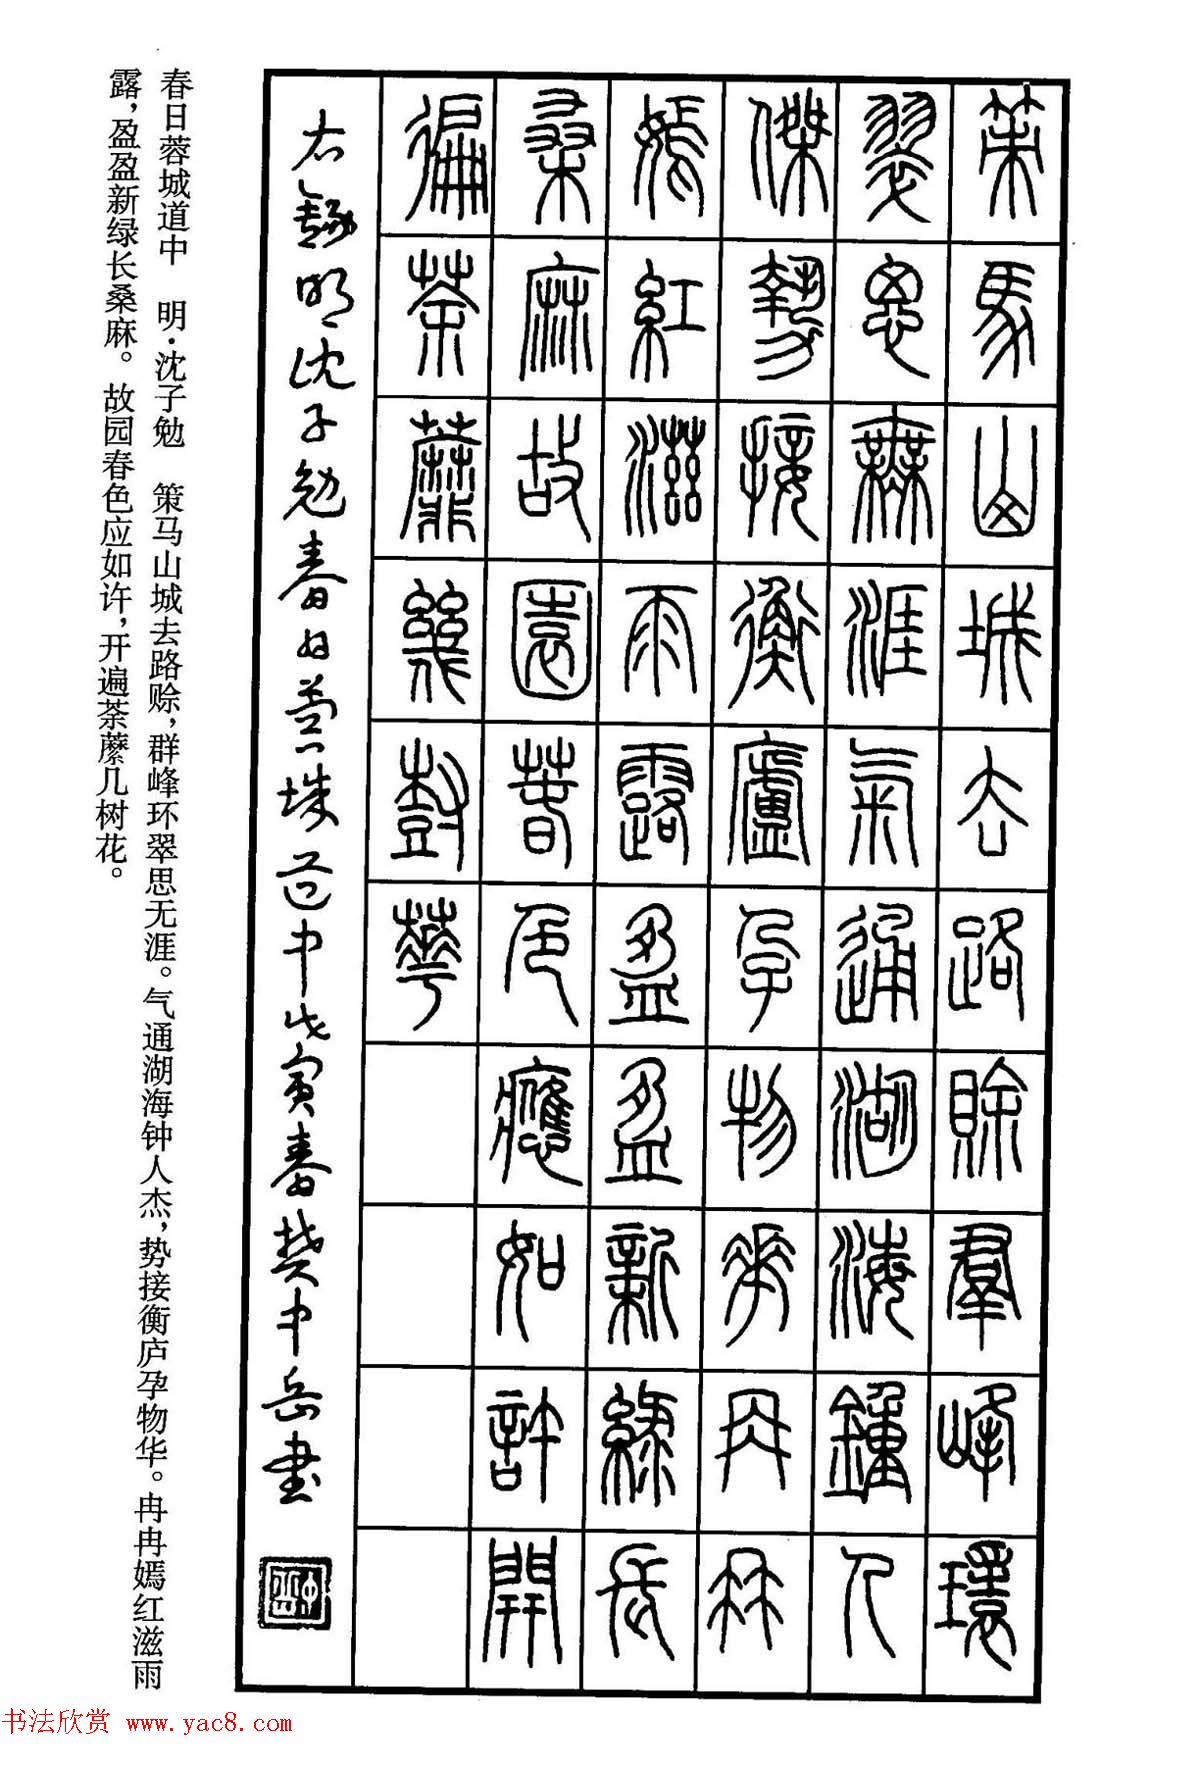 策馬山城去路賒羣峰環
翠思無涯气通湖海鐘人
傑勢接衡廬孕物華冉冉
嫣紅滋雨露盈盈新綠長
桑麻故園春色應如許開
徧荼蘼幾樹華
右錄明沈子勉春日蓉城道中戊寅春樊中岳書
春日蓉城道中 明·沈子勉 策马山城去路赊，群峰环翠思无涯。气通湖海钟人杰，势接衡庐孕物华。冉冉嫣红滋雨
露，盈盈新绿长桑麻。故园春色应如许，开遍荼蘼几树花。
书法欣赏 www.yac8.com